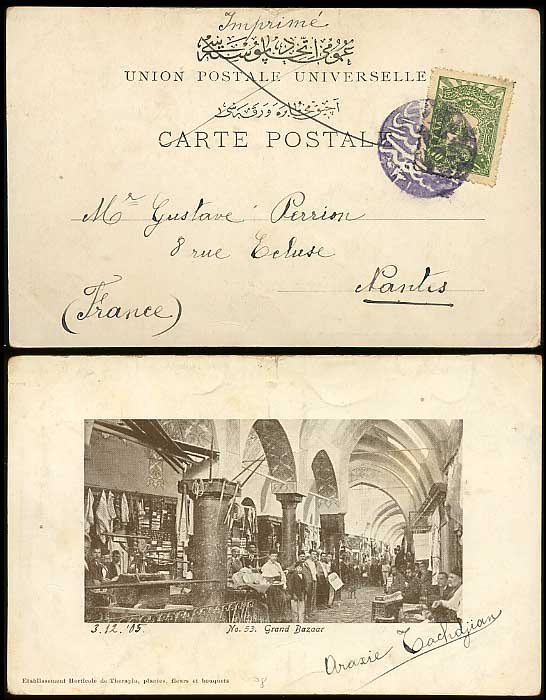 Imprimé
عمومی اتحاد پوسته سی
UNION POSTALE UNIVERSELLE
CARTE POSTALE
10
Mr. Gustave Perrion
8 rue Ecluse
Nantes
(France)
3.12.'05.
No. 53. Grand Bazaar
Araxie Tachdjian
Etablissement Horticole de Therapia, plantes, fleurs et bouquets